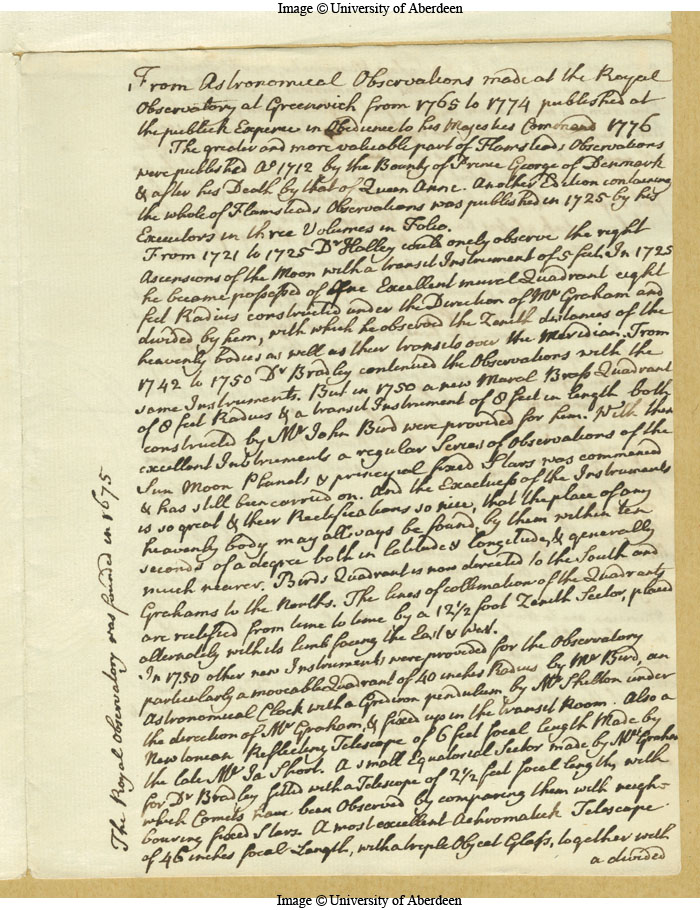 Image © University of Aberdeen
From Astronomical Observations made at the Royal
Observatory at Greenwich from 1765 to 1774 published at
the publick Expence in Obedience to his Majesties Command 1776
The greater and more valuable part of Flamsteads Observations
were published Ao 1712 by the Bounty of Prince George of Denmark
& after his Death by that of Queen Anne. Another Edition containing
the whole of Flamsteads Observations was published in 1725 by his
Executors in three Volumes in Folio.
From 1721 to 1725 Dr Halley could onely observe the right
Ascensions of the Moon with a transit Instrument of 5 feet. In 1725
he became possessed of Excellent mural Quadrant eight
feet Radius constructed under the Direction of Mr Graham and
divided by him, with which he observed the Zenith distances of the
heavenly bodies as well as their transits over the Meridian. From
1742 to 1750 Dr Bradley continued the Observations with the
same Instruments. But in 1750 a new Mural Brass Quadrant
of 8 feet Radius & a transit Instrument of 8 feet in length both
constructed by Mr John Bird were provided for him. With these
excellent Instruments a regular Series of Observations of the
Sun Moon Planets & principal fixed Stars was commenced
& has still been carried on. And the Exactness of the Instruments
is so great & their Rectifications so nice, that the place of any
heavenly body may allways be found by them within ten
seconds of a degree both in latitude & longitude, & generally
much nearer. Birds Quadrant is now directed to the South and
Grahams to the North. The lines of collimation of the Quadrants
are rectified from time to time by a 12 1/2 foot Zenith Sector, placed
alternately with its limb facing the East & West.
In 1750 other new Instruments were provided for the Observatory
particularly a moveable Quadrant of 40 inches Radius by Mr Bird, an
Astronomical Clock with a Gridiron pendulum by Mr Shelton under
the direction of Mr Graham, & fixed up in the transit Room. Also a
Newtonian Reflecting Telescope of 6 feet focal length Made by
the late Mr Ja Short. A small Equatorial Sector made by Mr Graham
for Dr Bradley fitted with a Telescope of 2 1/2 feet focal length, with
which Comets have been Observed by comparing them with neigh-
bouring fixed Stars. A most excellent Achromatick Telescope
of 46 inches focal Length, with a triple Object Glass, together with
a divided
The Royal Observatory was founded in 1675
Image © University of Aberdeen